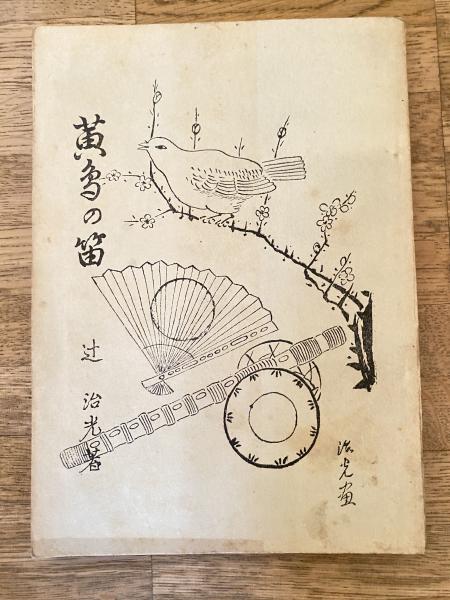 黄鳥の笛
辻 治光著
治光画